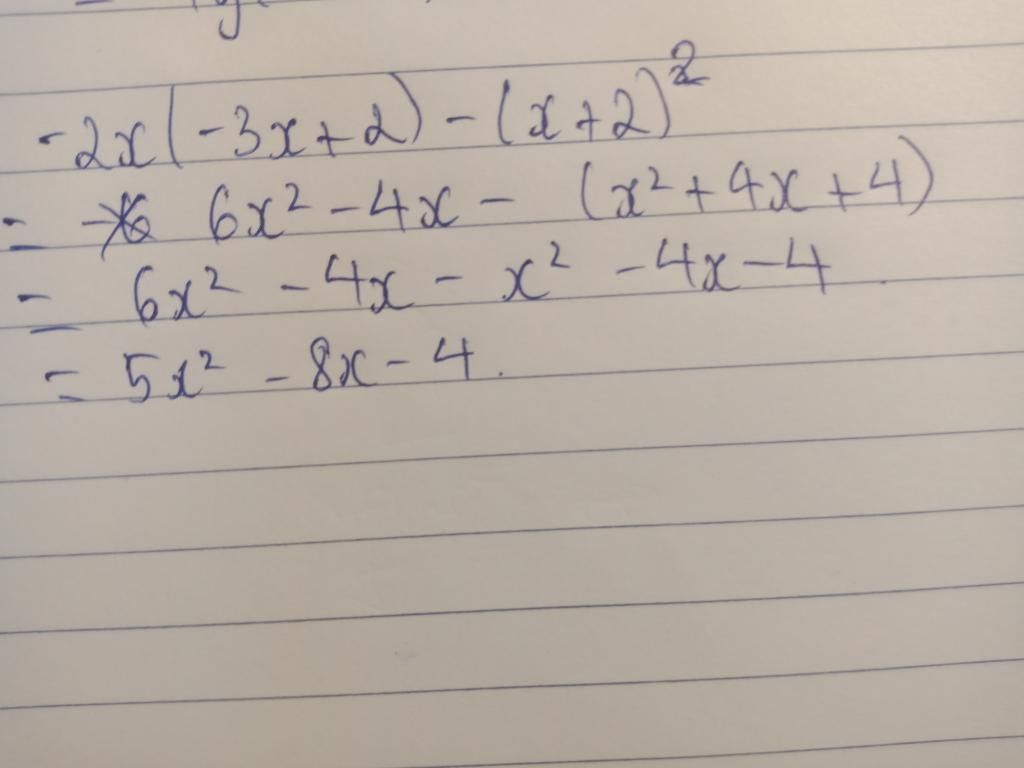 -2x(-3x+2) - (x+2)²
= 6x² - 4x - (x² + 4x + 4)
= 6x² - 4x - x² - 4x - 4
= 5x² - 8x - 4.